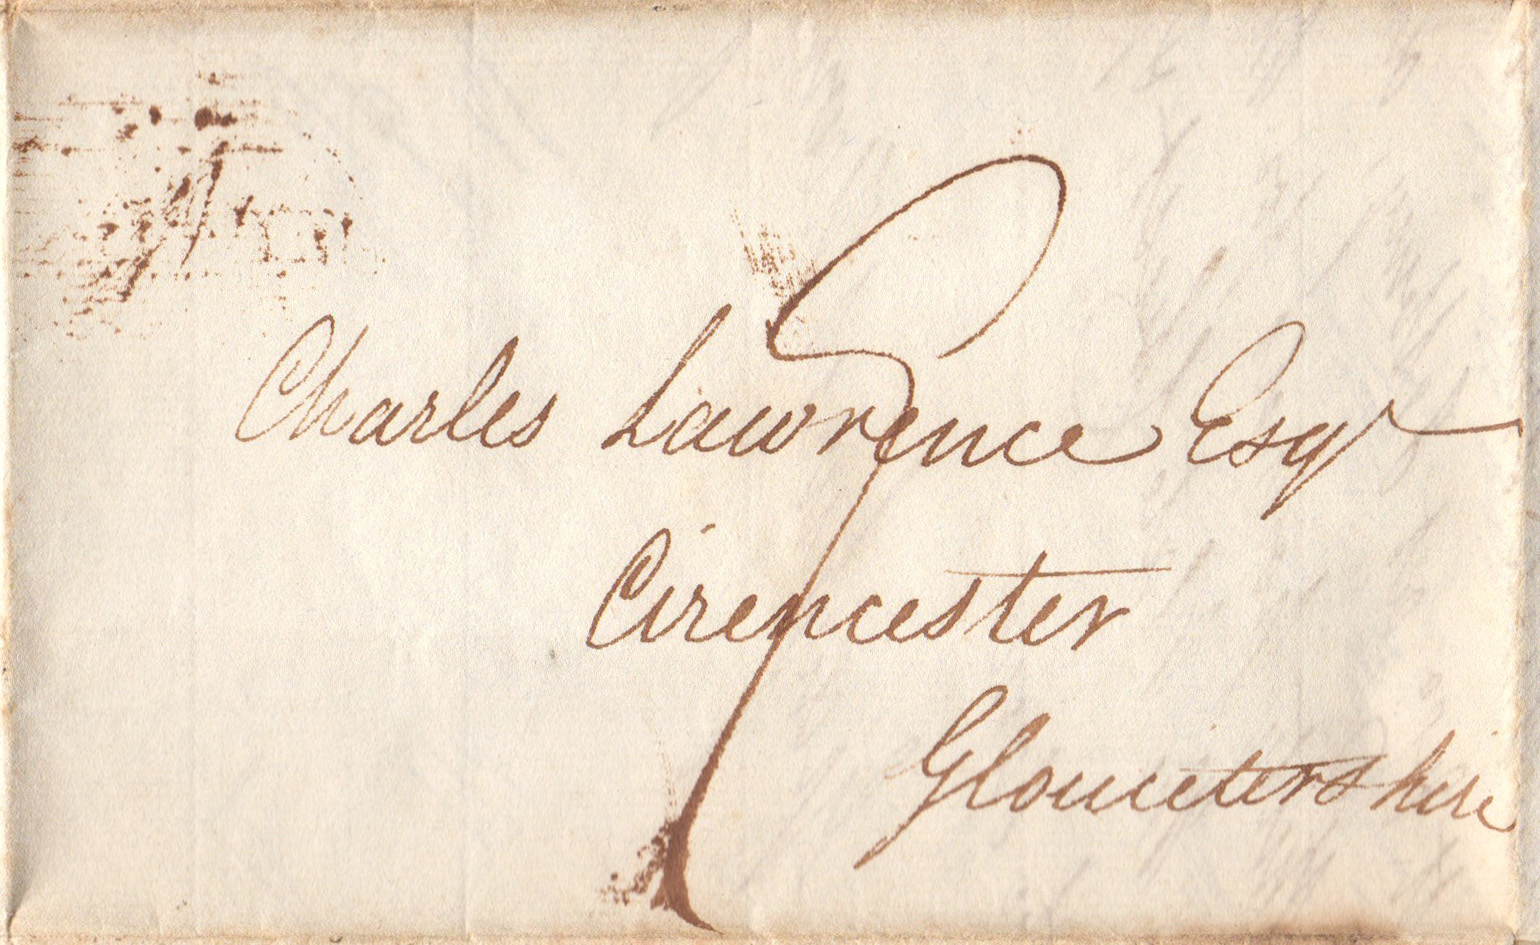 Charles Lawrence Esqr
Cirencester
Gloucetershire